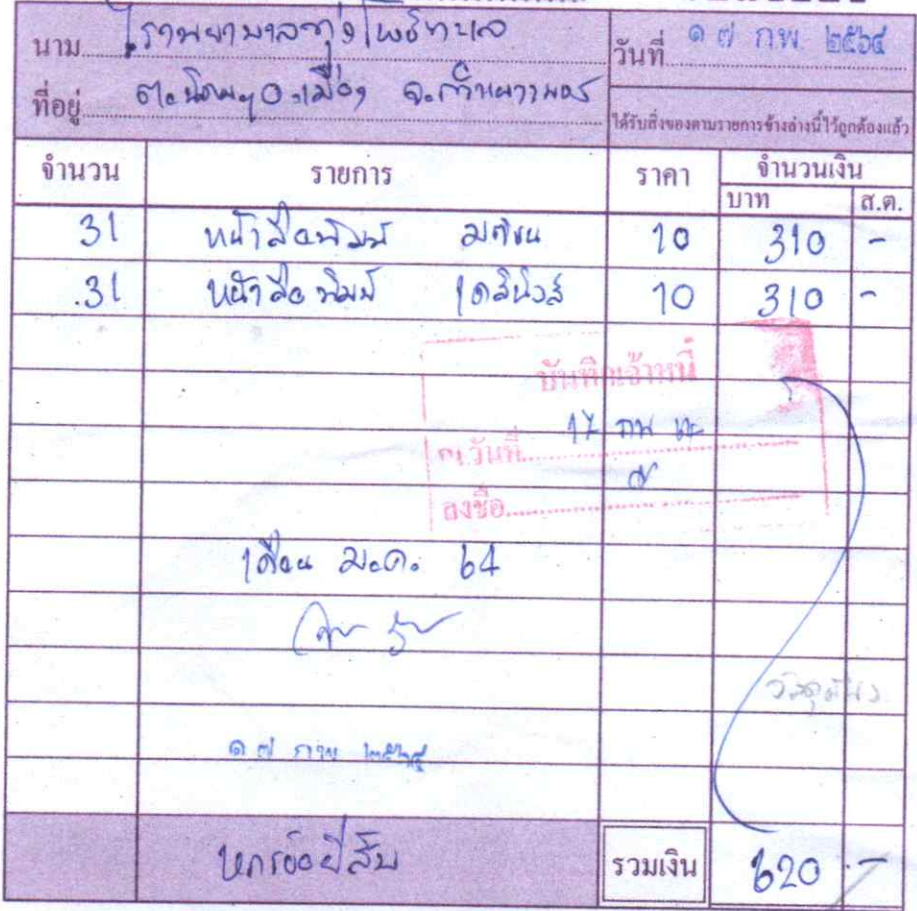 นาม โรงพยาบาลทุ่งโพธิ์ทะเล
วันที่ ๑๗ ก.พ. ๒๕๖๔
ที่อยู่ ต.นิคมฯ อ.เมือง จ.กำแพงเพชร
ได้รับสิ่งของตามรายการข้างล่างนี้ไว้ถูกต้องแล้ว
จำนวน รายการ ราคา จำนวนเงิน
บาท ส.ต.
31 หน้าสือพิมพ์ มติชน 10 310 -
31 หน้าสือพิมพ์ เดลินิวส์ 10 310 -
บันทึกเจ้าหนี้
วันที่ 17 กพ 64
ลงชื่อ
เดือน ม.ค. 64
๑๗ กพ ๒๕๖๔
หกร้อยยี่สิบ รวมเงิน 620 -